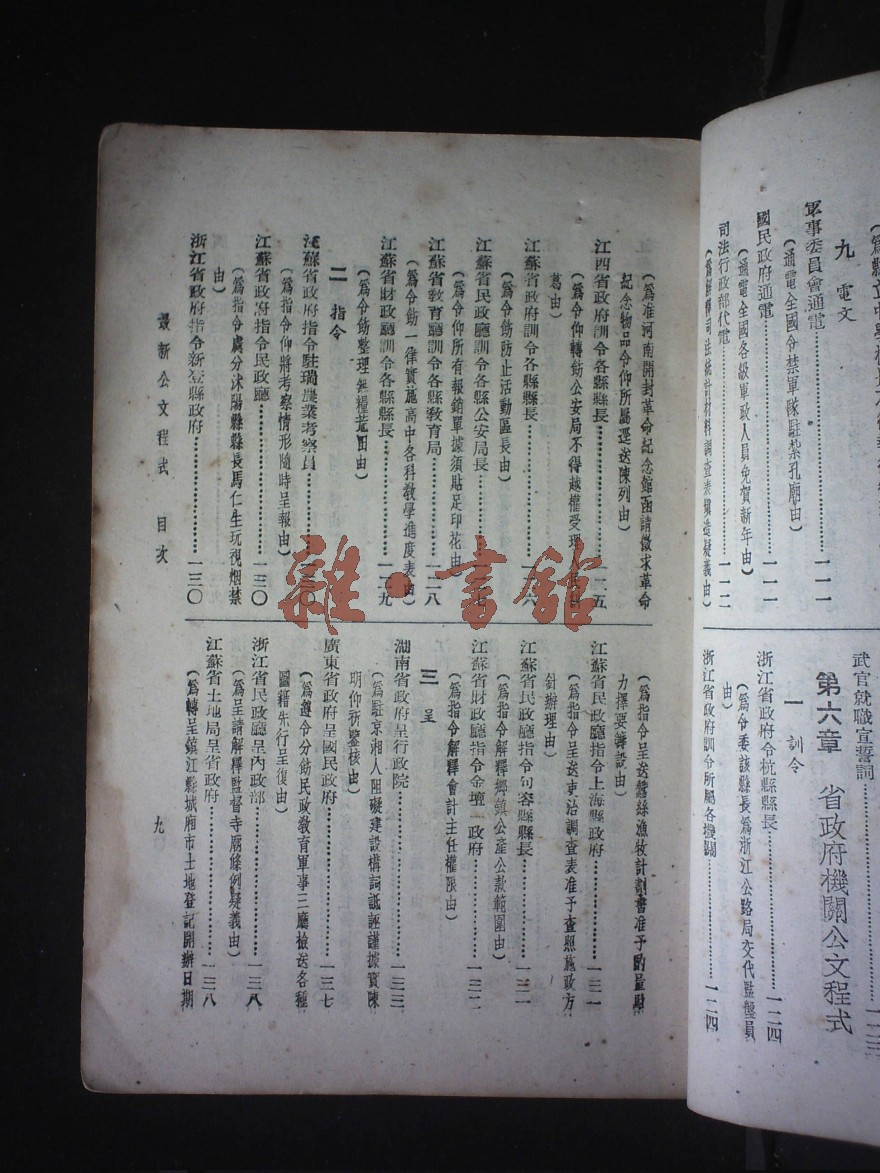 九 電文
軍事委員會通電………一一一
(通電全國令禁軍隊駐紮孔廟由)
國民政府通電………一一一
(通電全國各級軍政人員免賀新年由)
司法行政部代電………一一二
(爲解釋司法統計材料調查表填造疑義由)
武官就職宣誓詞
第六章 省政府機關公文程式
一 訓令
浙江省政府令杭縣縣長………一二四
(爲令委該縣長爲浙江公路局交代監盤員
由)
浙江省政府訓令所屬各機關………一二四
(爲准河南開封革命紀念館函請徵求革命
紀念物品令仰所屬逕送陳列由)
江西省政府訓令各縣縣長………一二五
(爲令仰轉飭公安局不得越權受理
葛由)
江蘇省政府訓令各縣縣長………一二六
(爲令飭防止活動區長由)
江蘇省民政廳訓令各縣公安局長
(爲令仰所有報銷單據須貼足印花由)
江蘇省教育廳訓令各縣教育局………一二八
(爲令飭一律實施高中各科教學進度表由)
江蘇省財政廳訓令各縣縣長………一二九
(爲令飭整理無糧蘆田由)
二 指令
江蘇省政府指令駐瑞農業考察員………一三〇
(爲指令仰將考察情形隨時呈報由)
江蘇省政府指令民政廳………一三〇
(爲指令處分沭陽縣縣長馬仁生玩視烟禁
由)
浙江省政府指令新登縣政府………一三〇
(爲指令呈送蠶絲漁牧計劃書准予酌量財
力擇要籌設由)
江蘇省民政廳指令上海縣政府………一三一
(爲指令呈送吏治調查表准予查照施政方
針辦理由)
江蘇省民政廳指令句容縣縣長………一三一
(爲指令解釋鄉鎮公產公款範圍由)
江蘇省財政廳指令金壇 政府………一三二
(爲指令解釋會計主任權限由)
三 呈
湖南省政府呈行政院………一三三
(爲駐京湘人阻礙建設構詞誣謹據實陳
明仰祈鑒核由)
廣東省政府呈國民政府………一三七
(爲遵令分飭民政教育軍事三廳檢送各種
圖籍先行呈復由)
浙江省民政廳呈內政部………一三八
(爲呈請解釋監督寺廟條例疑義由)
江蘇省土地局呈省政府………一三八
(爲轉呈鎮江縣城廂市土地登記開辦日期
最新公文程式 目次
九
雜·書館